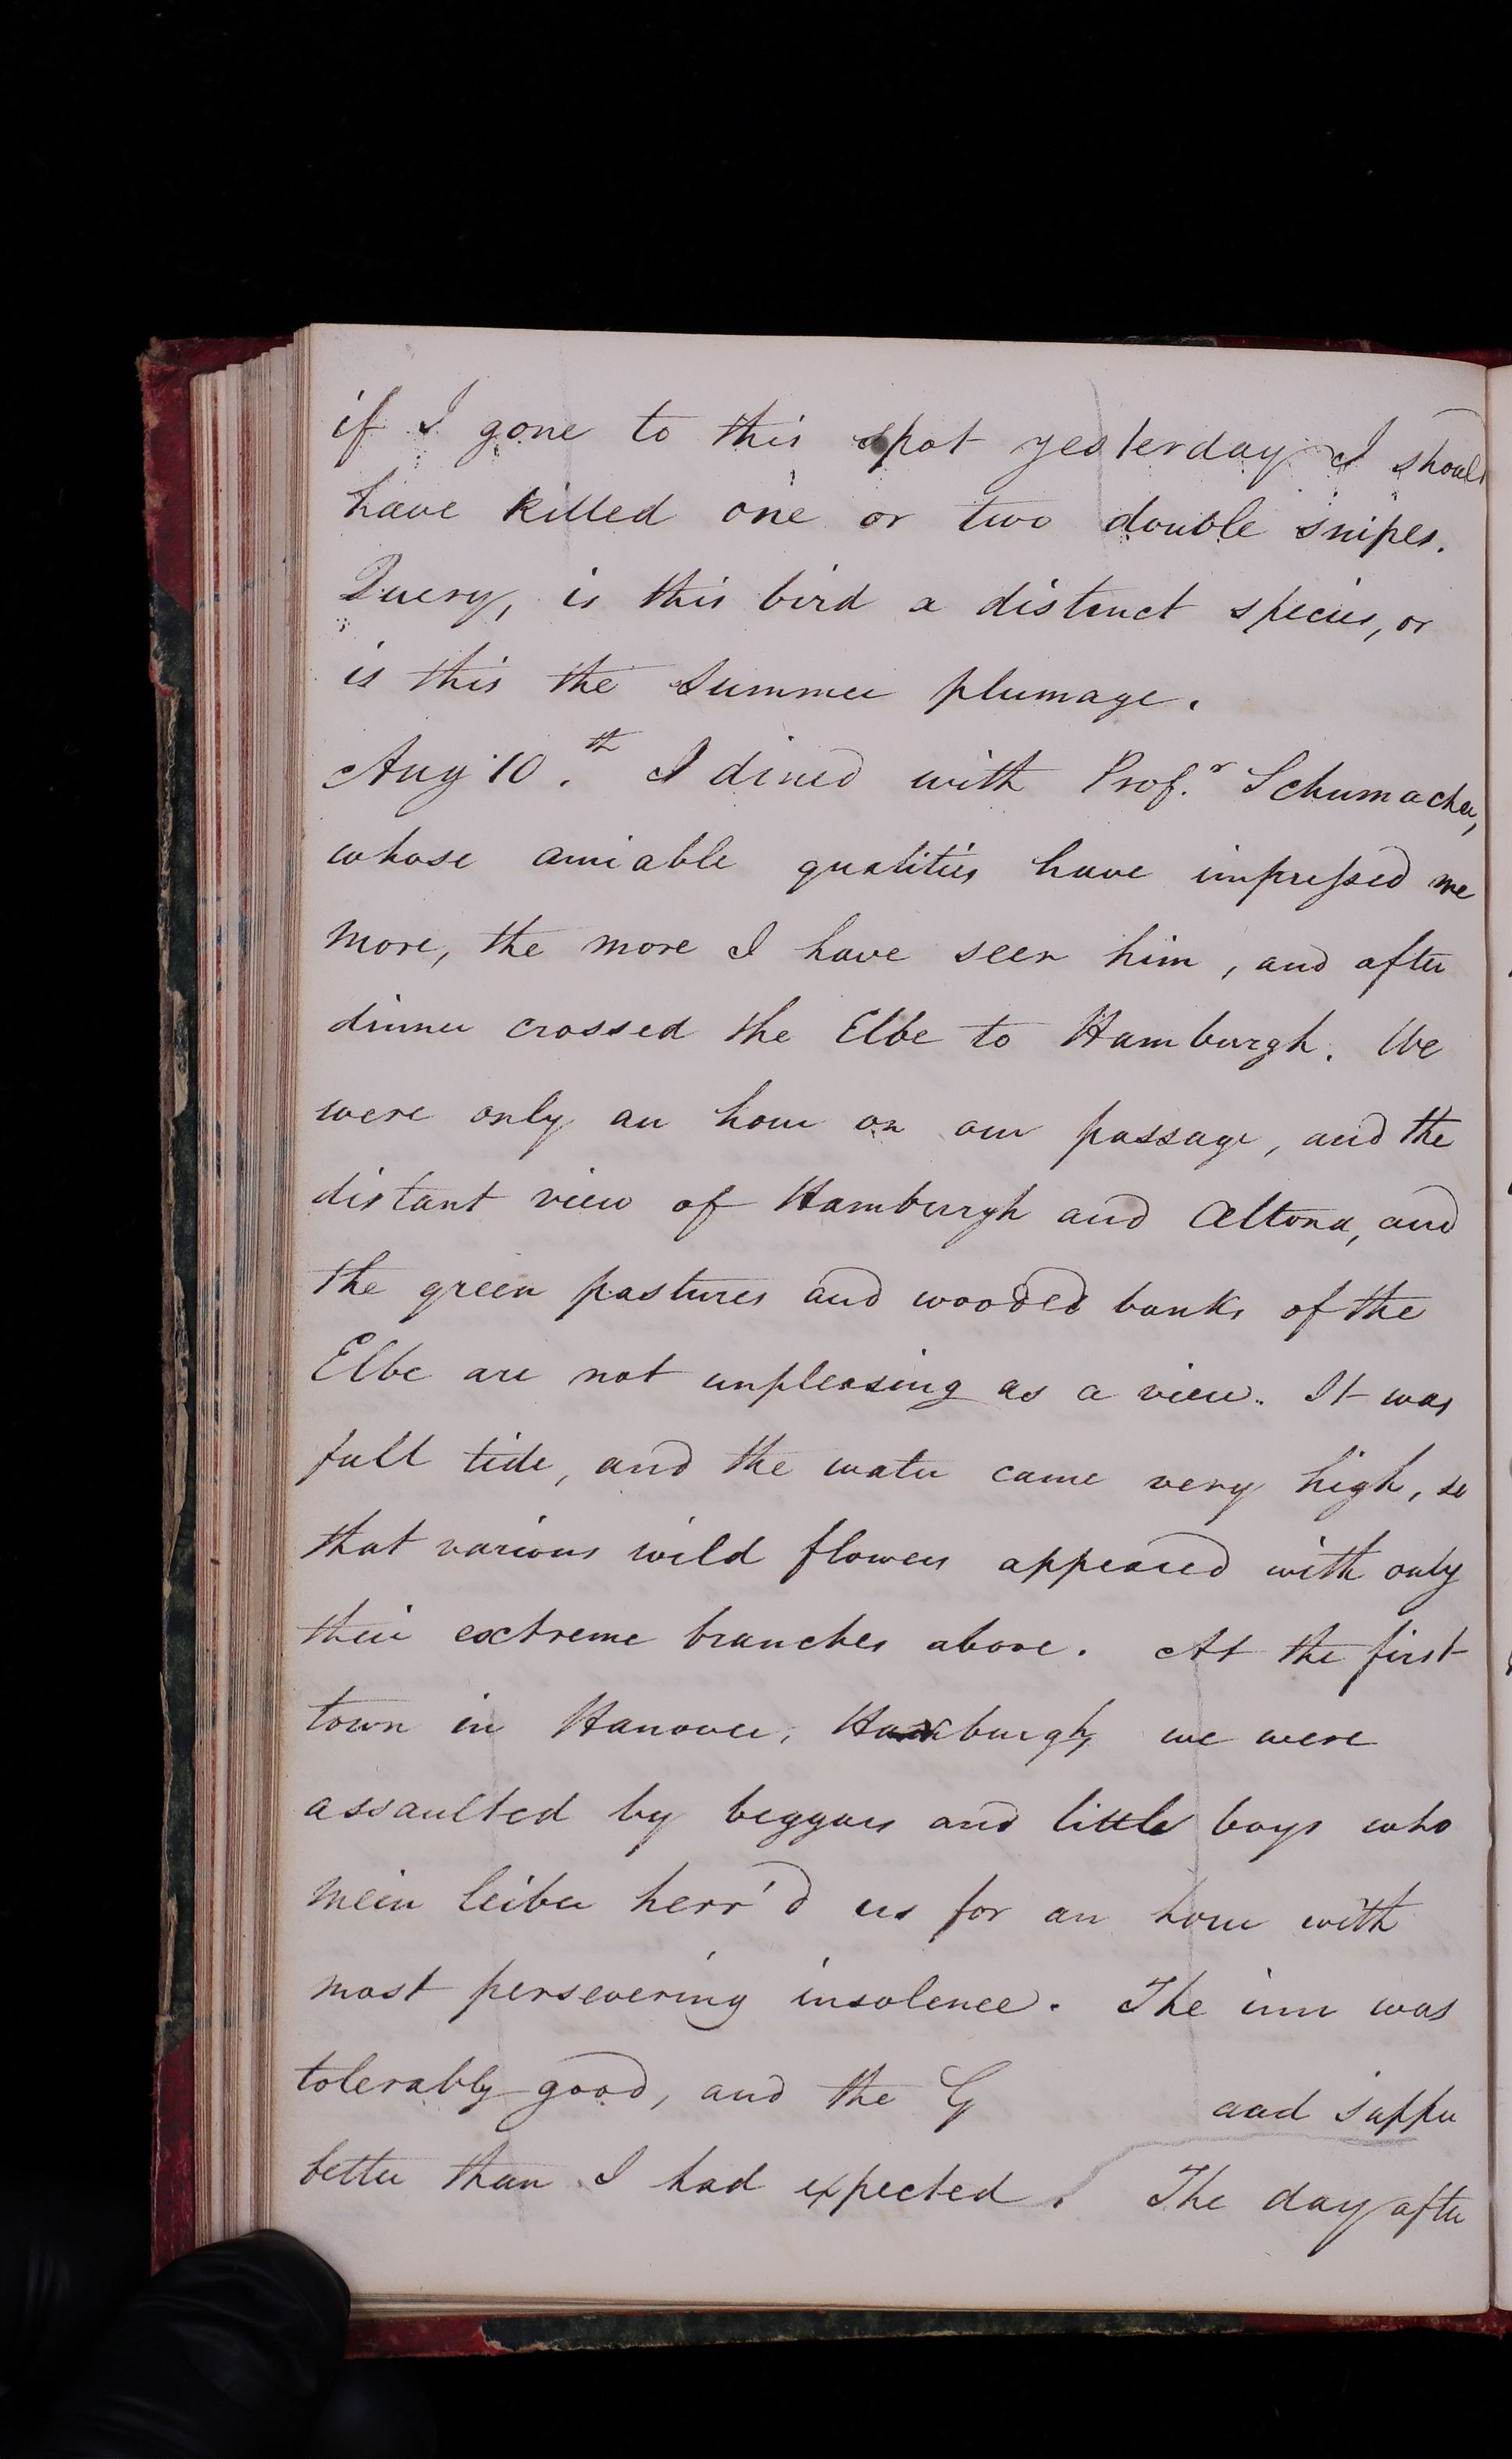 if I gone to this spot yesterday I should
have killed one or two double snipes.
Query, is this bird a distinct species, or
is this the summer plumage.
Aug 10.th I dined with Prof.r Schumacher,
whose amiable qualities have impressed me
more, the more I have seen him, and after
dinner crossed the Elbe to Hamburgh. We
were only an hour on our passage, and the
distant view of Hamburgh and Altona, and
the green pastures and wooded banks of the
Elbe are not unpleasing as a view. It was
full tide, and the water came very high, so
that various wild flowers appeared with only
their extreme branches above. At the first
town in Hanover, Harburgh, we were
assaulted by beggars and little boys who
mein leiber herr'd us for an hour with
most persevering insolence. The inn was
tolerably good, and the G aad supper
better than I had expected. The day after